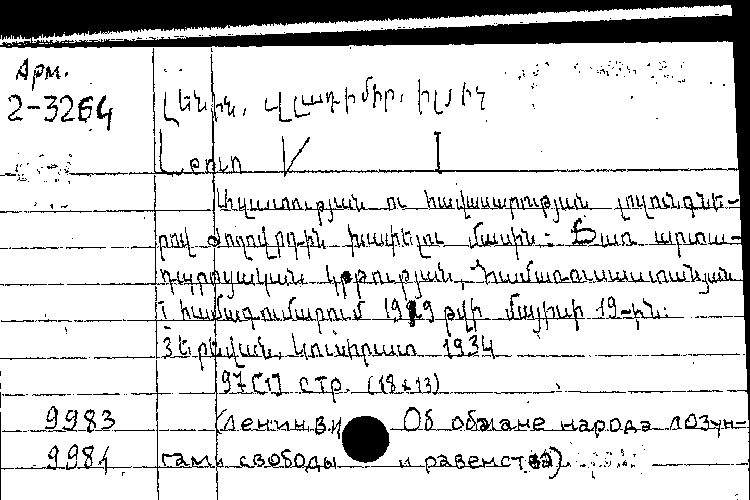 Арм.
2-3264
Լենին, Վլադիմիր. Իլյիչ
Ազատության ու հավասարության լոզունգնե-
րով ժողովրդին խաբելու մասին: Ճառ արտա-
դպրոցական կրթության Համառուսաստանյան
I համագումարում 1919 թվի մայիսի 19-ին:
Յերևան, Կուսհրատ 1934
97 [1] стр. (18x13)
9983 (Ленин В.И Об обмане народа лозун-
9984 гами свободы и равенства).